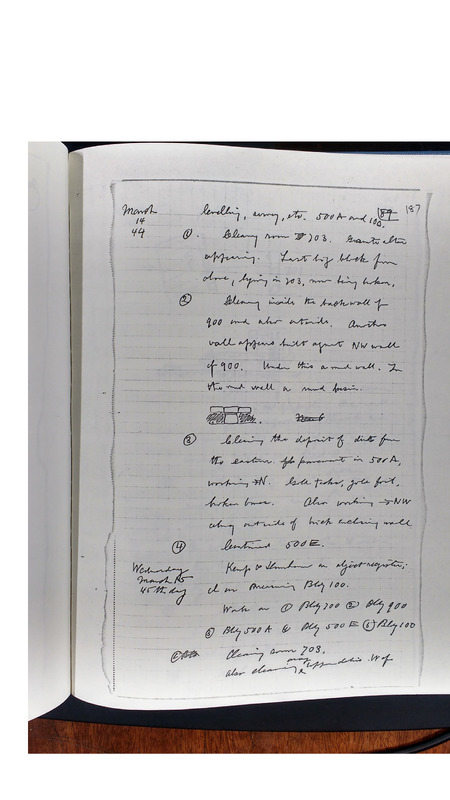 89 187
March levelling, survey, etc. 500A and 100.
14
44 ①. Clearing room 703. Granite altar
appearing. Last big block from
above, lying in 703, now being broken.
② Clearing inside the back wall of
900 and also outside. Another
wall appears built against NW wall
of 900. Under this a mud wall. In
the mud wall a mud basin.
③ Clearing the deposit of dirt from
the eastern pavement in 500A,
working → N. gold foil,
broken base. Also working → NW
along outside of brick enclosing wall
④ Continued 500E.
Wednesday Kemp & on object register;
March 15
45th day on measuring Bldg 100.
Work on ① Bldg 700 ② Bldg 900
③ Bldg 500A ④ Bldg 500E ⑤ Bldg 100
① Clearing room 703.
also clearing away W of